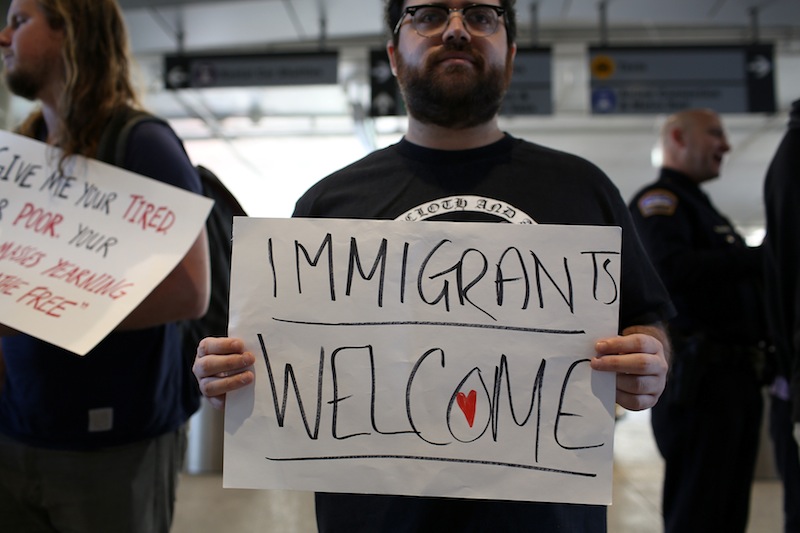 GIVE ME YOUR TIRED
POOR. YOUR
MASSES YEARNING
FREE"
CLOTH AND
IMMIGRANTS
WELCOME